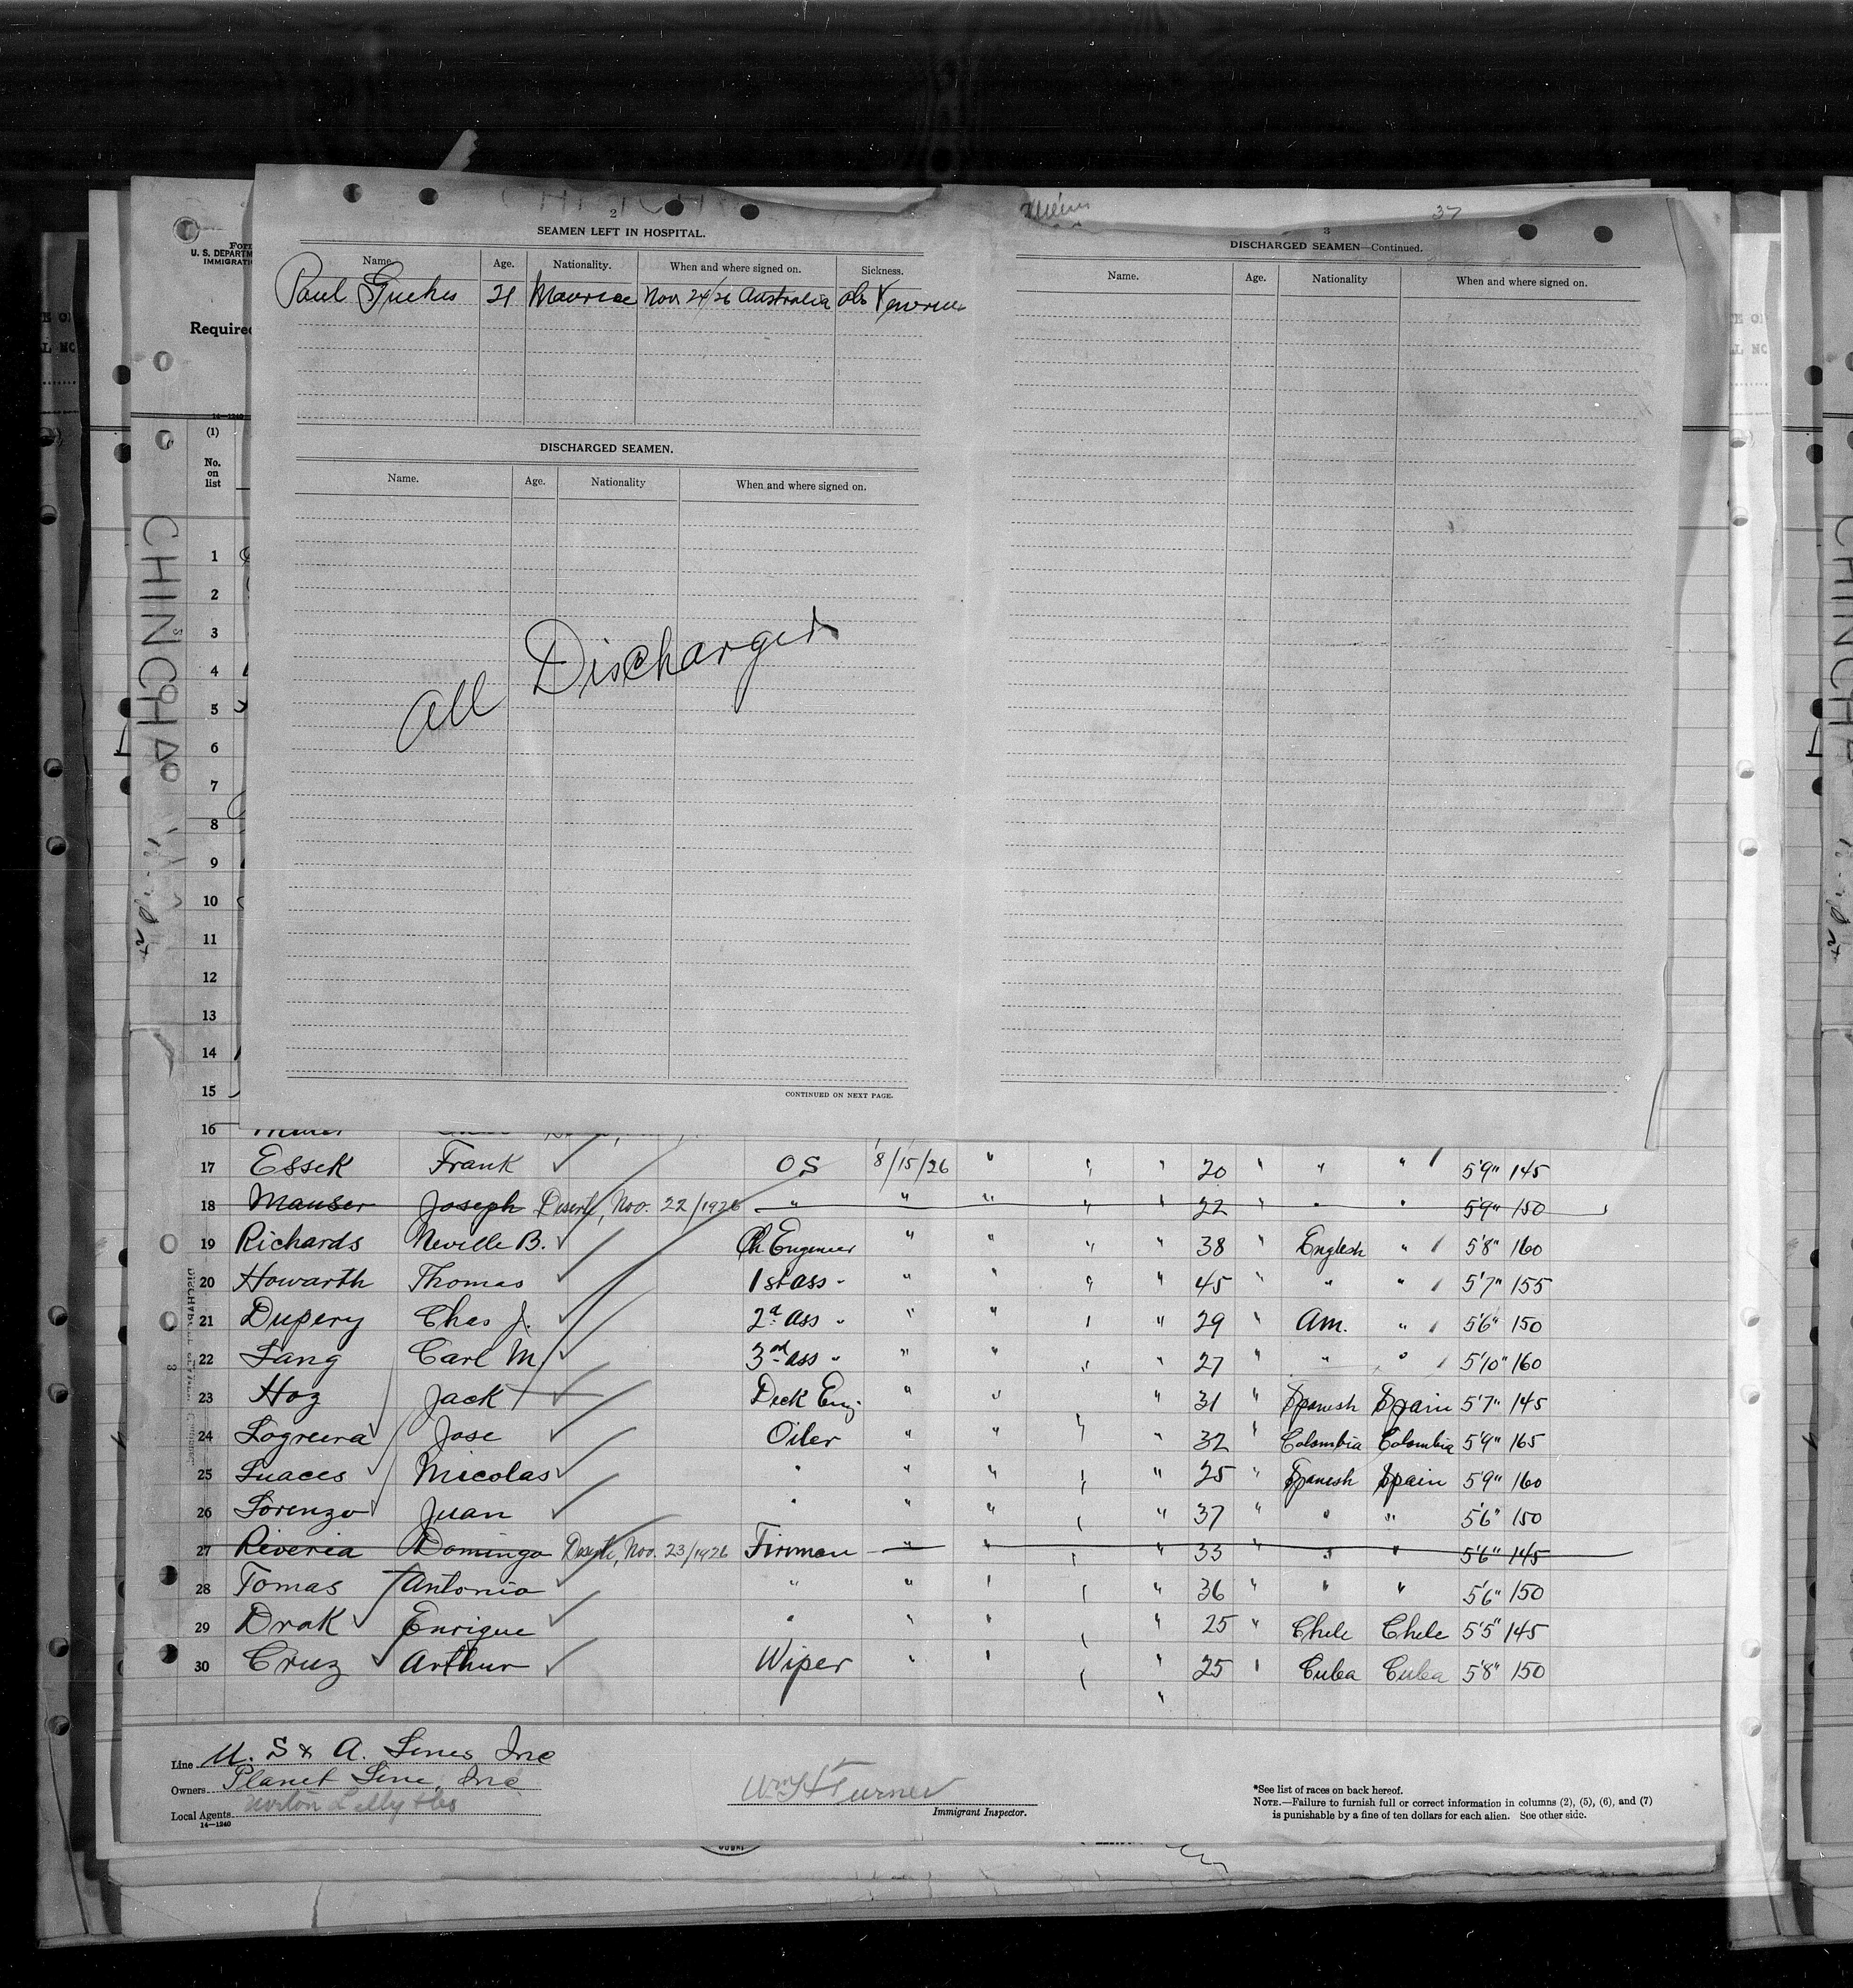 2
SEAMEN LEFT IN HOSPITAL.
Name. Age. Nationality. When and where signed on. Sickness.
Paul 21 Nov 24/26 Australia
DISCHARGED SEAMEN.
Name. Age. Nationality When and where signed on.
All Discharged
CONTINUED ON NEXT PAGE.
37
3
DISCHARGED SEAMEN—Continued.
Name. Age. Nationality When and where signed on.
Form
U. S. DEPARTM
IMMIGRATI
Required
14—1240
(1)
No.
on
list
CHINCHA
1
2
3
4
5
6
7
8
9
10
11
12
13
14
15
16
17 Essek Frank OS 8/15/26 " " " 20 " " " 5'9" 145
18 Mauser Joseph Desert, Nov. 22/1926 " " " " " 22 " " " 5'9" 150
19 Richards Neville B. Ch Engeneer " " " " 38 " English " 5'8" 160
20 Howarth Thomas 1st ass " " " " " 45 " " " 5'7" 155
21 Dupery Chas J. 2d ass " " " " 29 " Am. " 5'6" 150
22 Lang Carl M. 3rd ass " " " " " 27 " " " 5'10" 160
23 Hoz Jack Deck Eng. " " " 31 " Spanish Spain 5'7" 145
24 Logreera Jose Oiler " " " " 32 " Colombia Colombia 5'9" 165
25 Luaces Nicolas " " " " " 25 " Spanish Spain 5'9" 160
26 Lorenzo Juan " " " " " 37 " " " 5'6" 150
27 Riveria Domingo Desert, Nov. 23/1926 Firman " " " " 33 " " 5'6" 145
28 Tomas Antonio " " " " " 36 " " " 5'6" 150
29 Drak Enrique " " " " " 25 " Chile Chile 5'5" 145
30 Cruz Arthur Wiper " " " " 25 " Cuba Cuba 5'8" 150
"
Line U. S & A. Lines Inc
Owners Planet Line, Inc
Local Agents Norton Lilly & Co
14—1240
Wm H Turner
Immigrant Inspector.
*See list of races on back hereof.
NOTE.—Failure to furnish full or correct information in columns (2), (5), (6), and (7)
is punishable by a fine of ten dollars for each alien. See other side.